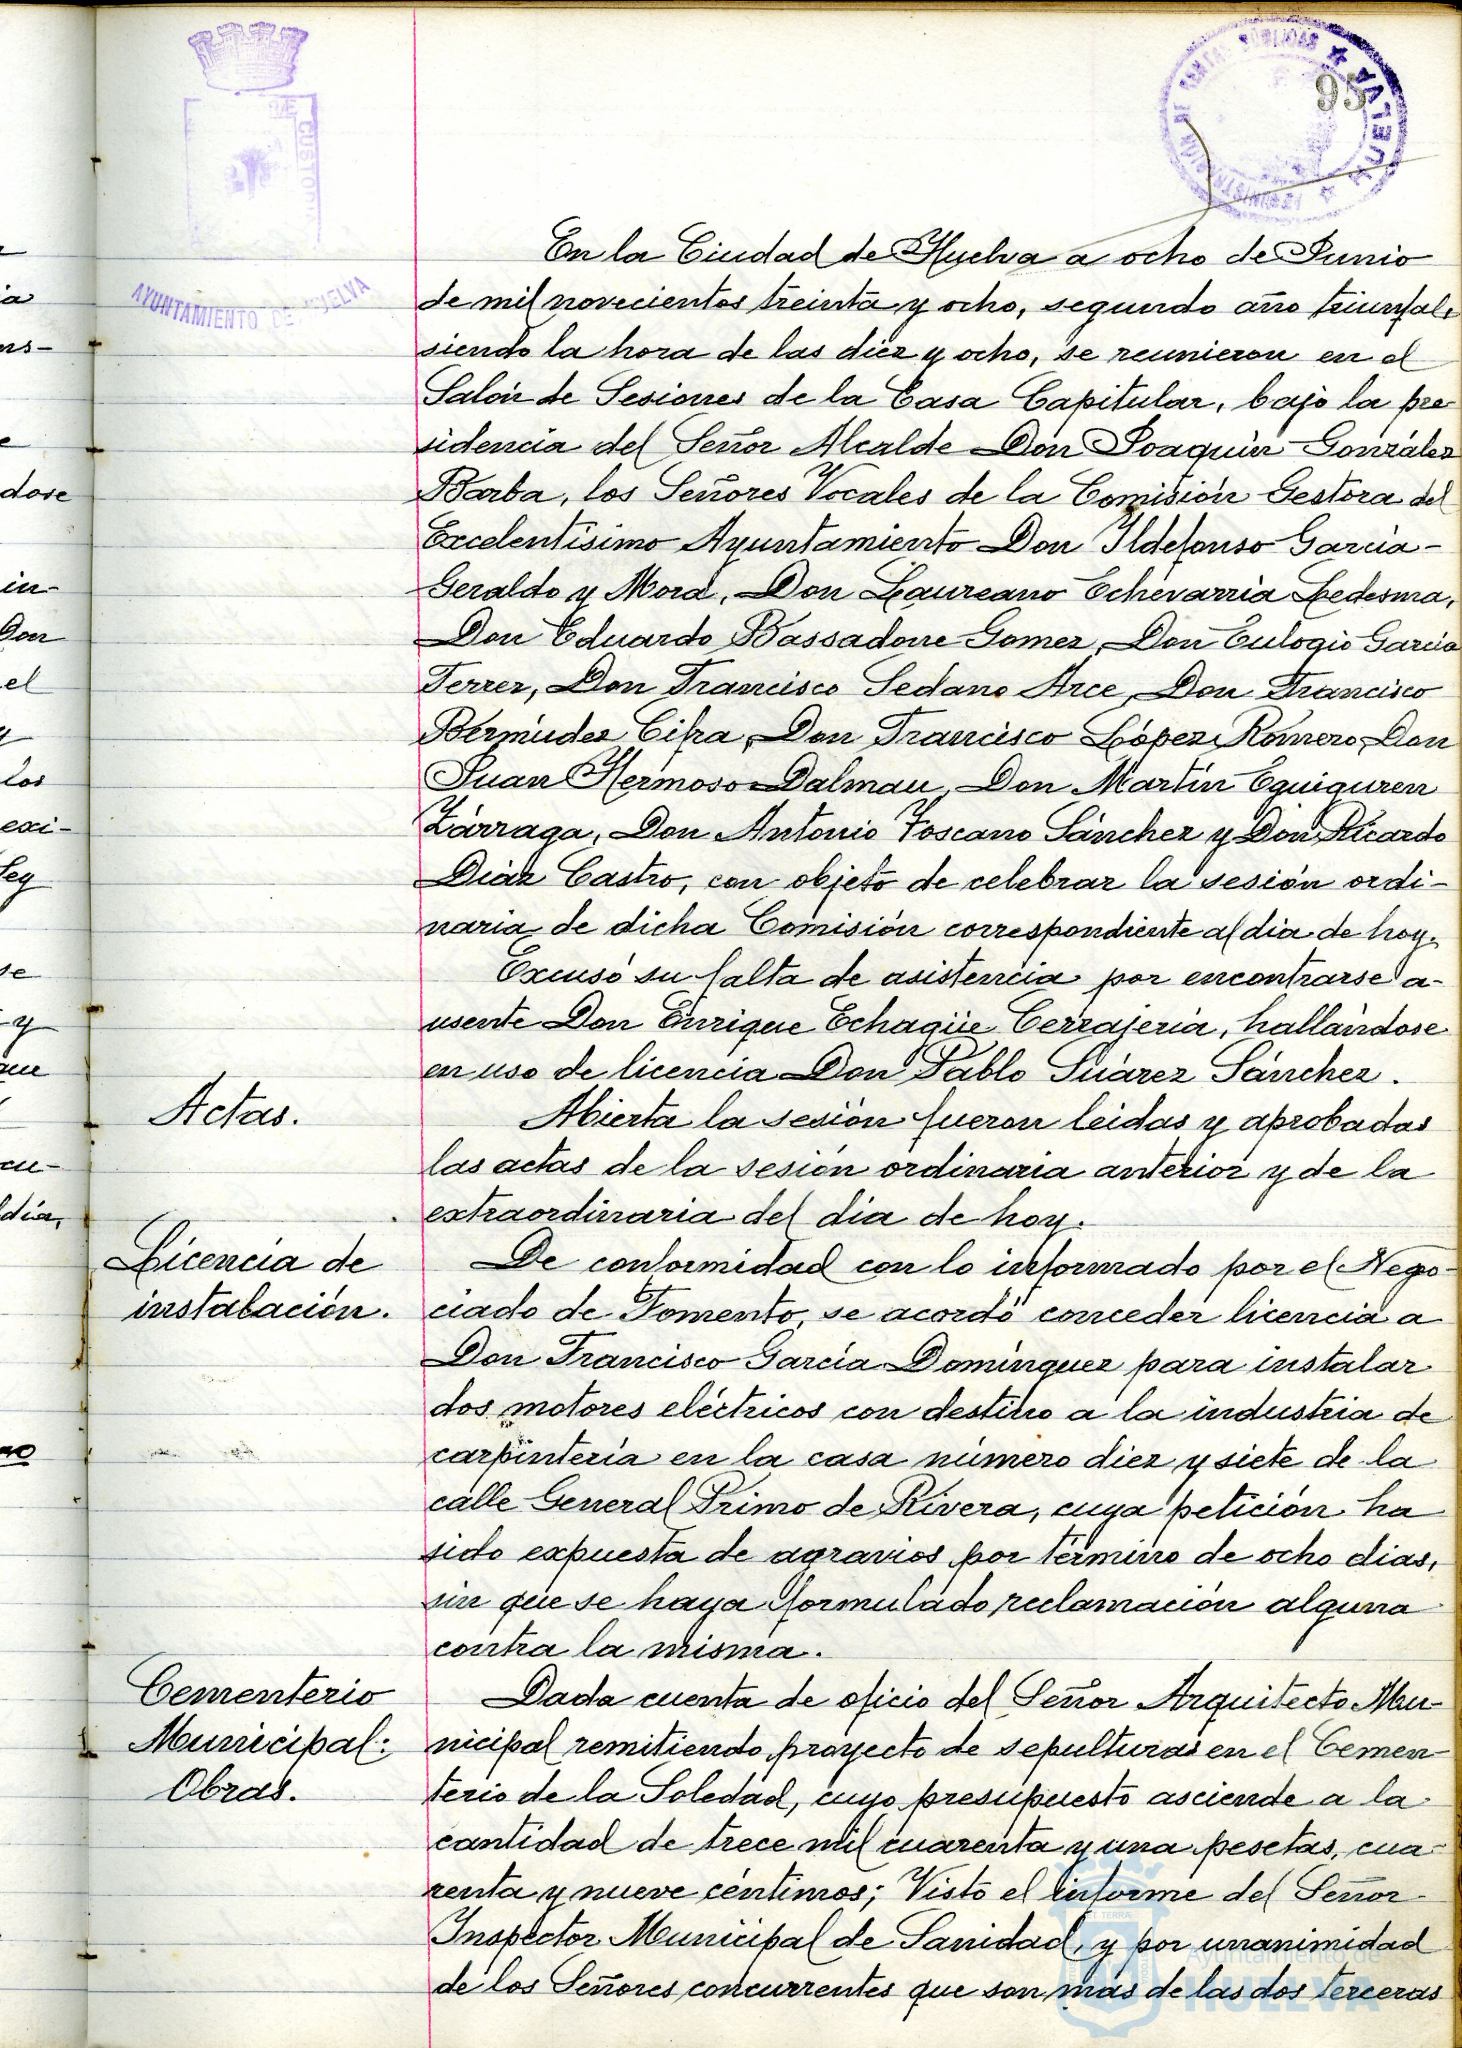 95
HUELVA
AYUNTAMIENTO DE HUELVA
En la Ciudad de Huelva a ocho de Junio
de mil novecientos treinta y ocho, segundo año triunfal,
siendo la hora de las diez y ocho, se reunieron en el
Salón de Sesiones de la Casa Capitular, bajo la pre-
sidencia del Señor Alcalde Don Joaquín González
Barba, los Señores Vocales de la Comisión Gestora del
Excelentísimo Ayuntamiento Don Ildefonso García-
Geraldo y Mora, Don Laureano Echevarría Ledesma,
Don Eduardo Bassadone Gomez, Don Eulogio García
Ferrer, Don Francisco Sedano Arce, Don Francisco
Bermúdez Cifra, Don Francisco López Romero, Don
Juan Hermoso Dalmau, Don Martín Eguiguren
Zárraga, Don Antonio Toscano Sánchez y Don Ricardo
Díaz Castro, con objeto de celebrar la sesión ordi-
naria de dicha Comisión correspondiente al día de hoy.
Excusó su falta de asistencia por encontrarse a-
usente Don Enrique Echagüe Cerrajería, hallándose
en uso de licencia Don Pablo Suárez Sánchez.
Actas.
Abierta la sesión fueron leidas y aprobadas
las actas de la sesión ordinaria anterior y de la
extraordinaria del día de hoy.
Licencia de
instalación.
De conformidad con lo informado por el Nego-
ciado de Fomento, se acordó conceder licencia a
Don Francisco García Domínguez para instalar
dos motores eléctricos con destino a la industria de
carpintería en la casa número diez y siete de la
calle General Primo de Rivera, cuya petición ha
sido expuesta de agravios por término de ocho días,
sin que se haya formulado reclamación alguna
contra la misma.
Cementerio
Municipal:
Obras.
Dada cuenta de oficio del Señor Arquitecto Mu-
nicipal remitiendo proyecto de sepulturas en el Cemen-
terio de la Soledad, cuyo presupuesto asciende a la
cantidad de trece mil cuarenta y una pesetas, cua-
renta y nueve céntimos; Visto el informe del Señor
Inspector Municipal de Sanidad, y por unanimidad
de los Señores concurrentes que son más de las dos terceras
Ayuntamiento de
HUELVA